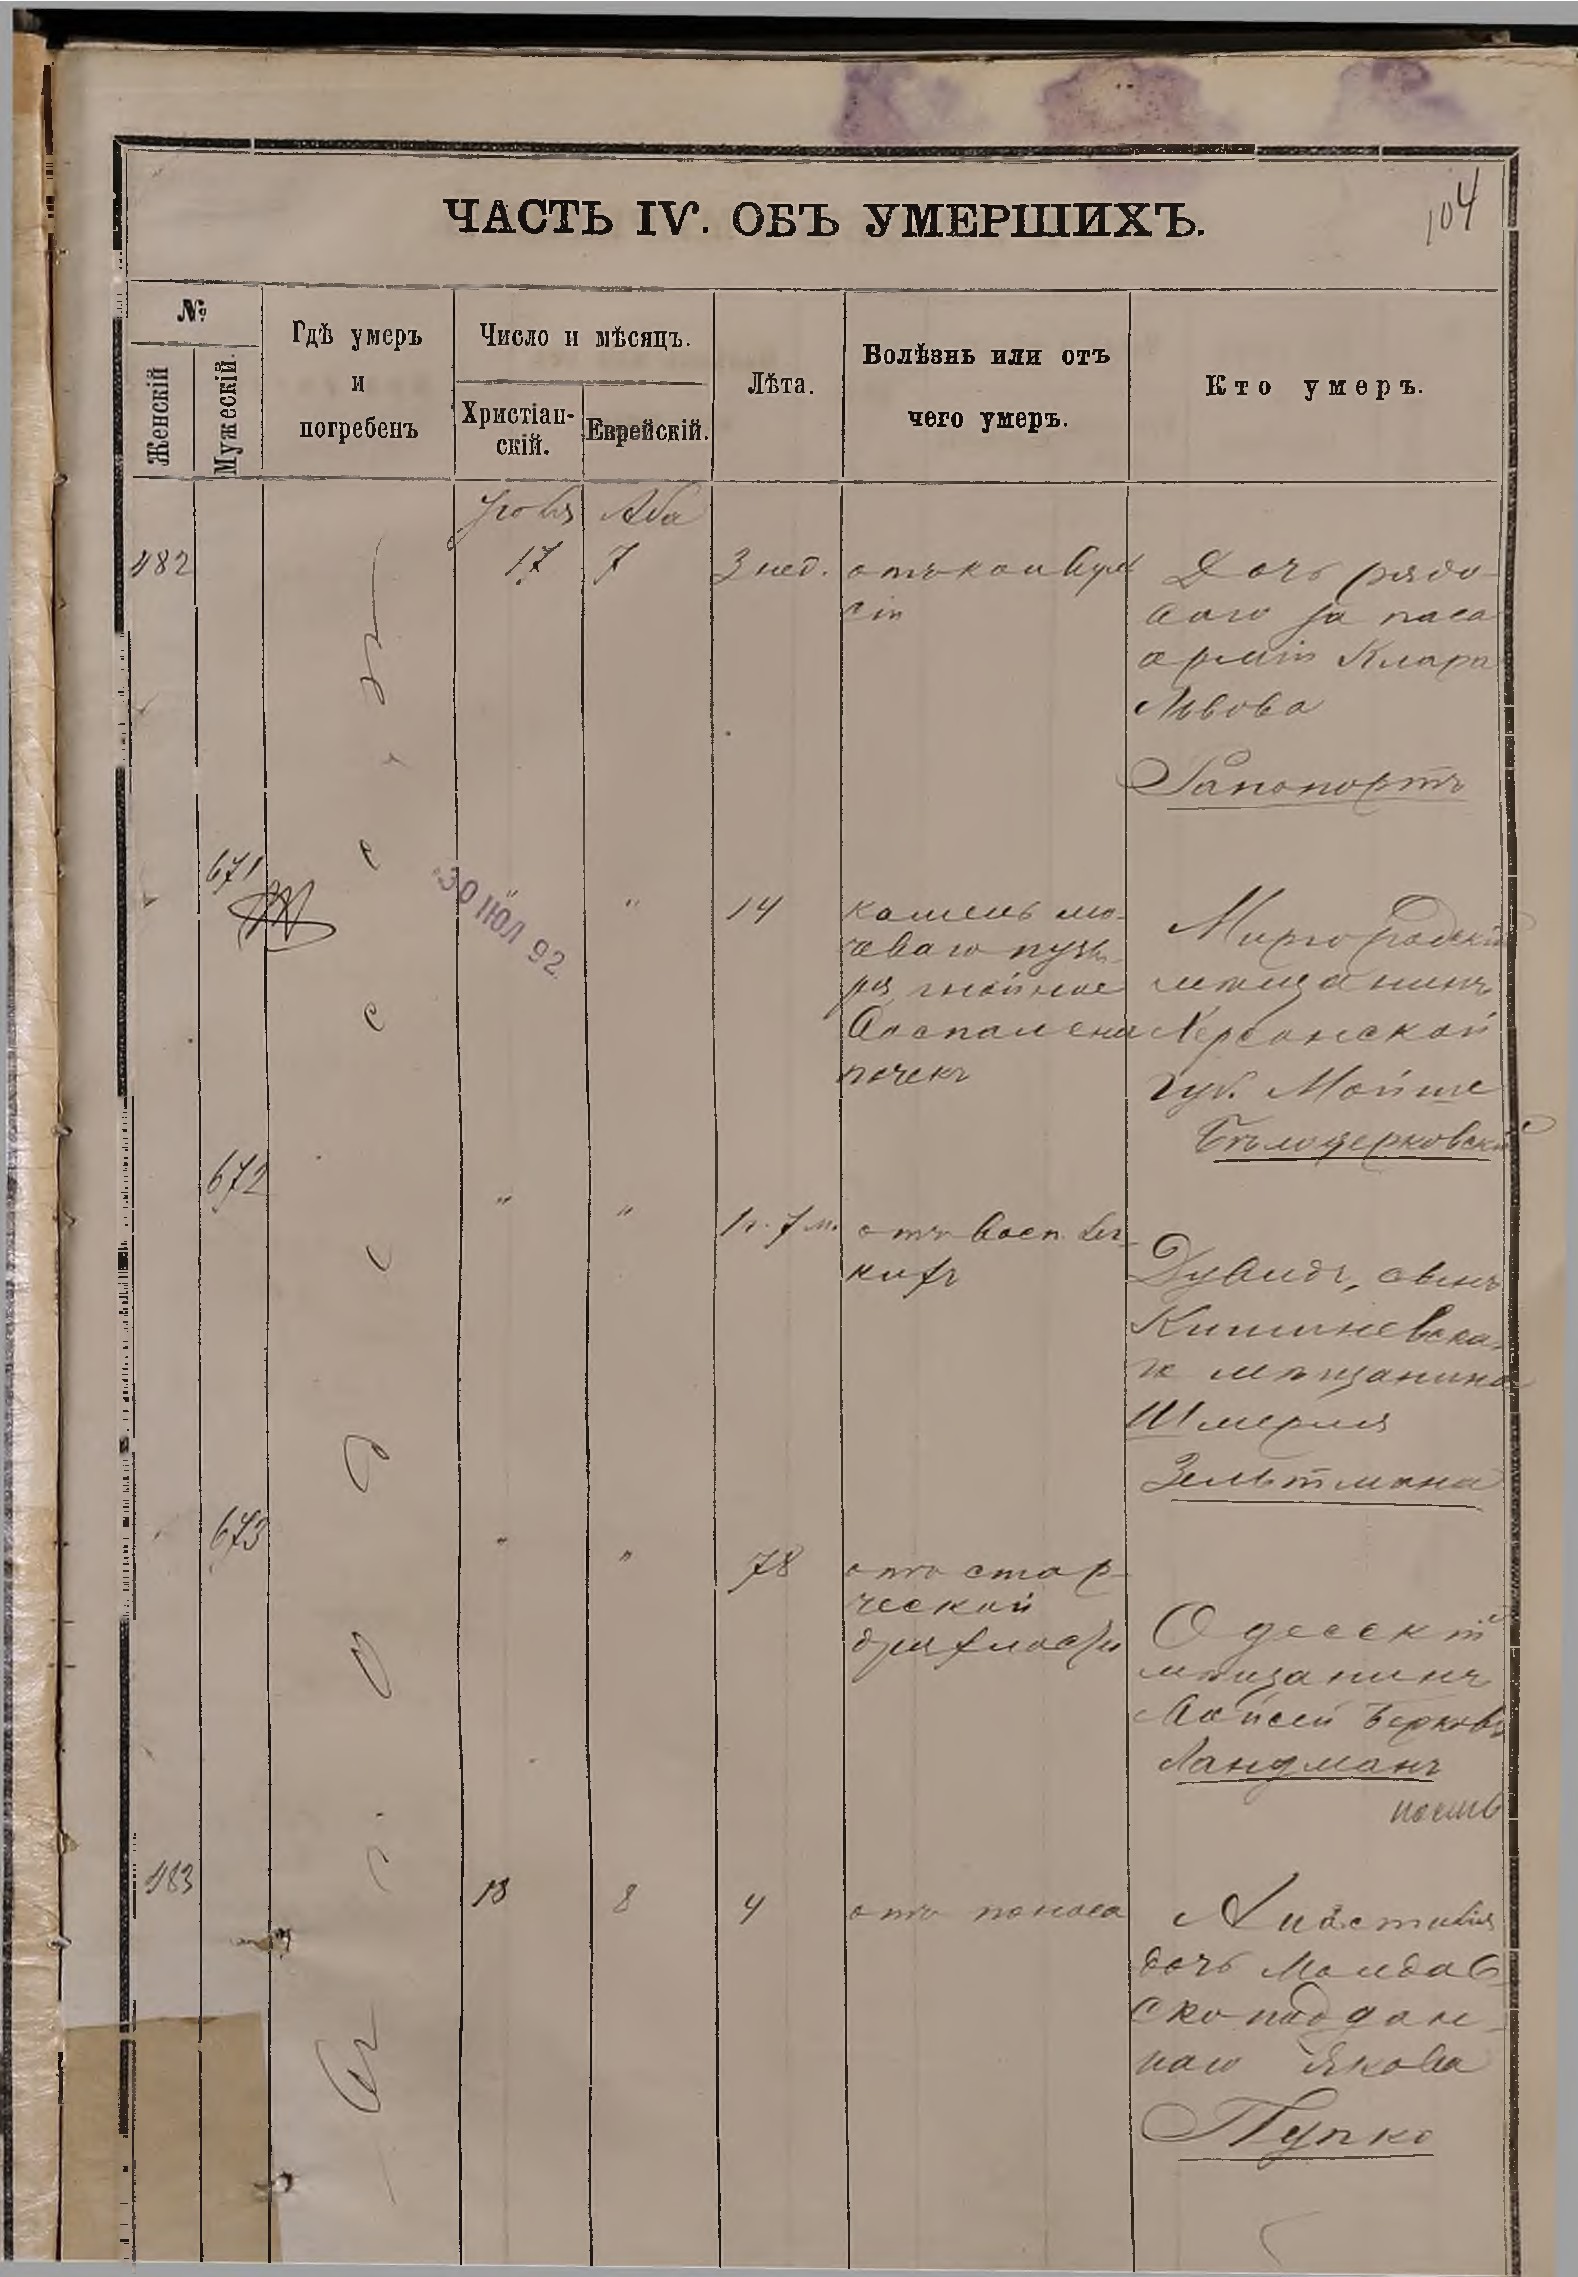 104
ЧАСТЬ IV. ОБЪ УМЕРШИХЪ.
№
Женскій
Мужескій.
Гдѣ умеръ
и
погребенъ
Число и мѣсяцъ.
Христіан-
скій.
Еврейскій.
Лѣта.
Болѣзнь или отъ
чего умеръ.
Кто умеръ.
Въ г. Одессѣ
Іюля
Аба
482
17
7
3 нед.
отъ конвуль
сіи
Дочь рядо-
ваго запаса
арміи Клара
Львова
Рапопортъ
671
"
"
30 ІЮЛ 92
14
камень мо-
чеваго пузы-
ря гнойное
воспаленіе
почекъ
Миргородскій
мѣщанинъ
Херсонской
губ. Мойше
Бѣлоцерковскій
672
"
"
1 г. 7 м.
отъ восп. лег-
кихъ
Дувидъ, сынъ
Кишиневска-
го мѣщанина
Шмерля
Зельтмана
673
"
"
78
отъ стар-
ческой
дряхлости
Одесскій
мѣщанинъ
Мойсей Берковъ
Ландманъ
483
18
8
4
отъ поноса
дочь Молдав-
скоподдан-
наго Якова
Пупко